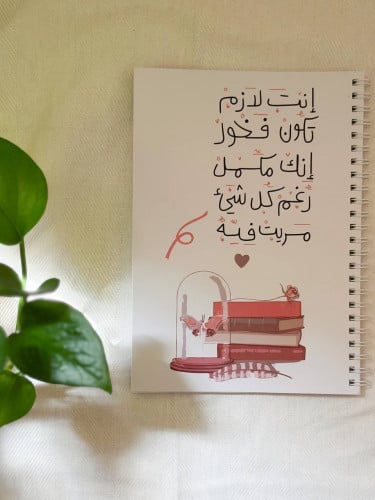 إنت لازم
تكون فخور
إنك مكمل
رغم كل شيء
مريت فيه